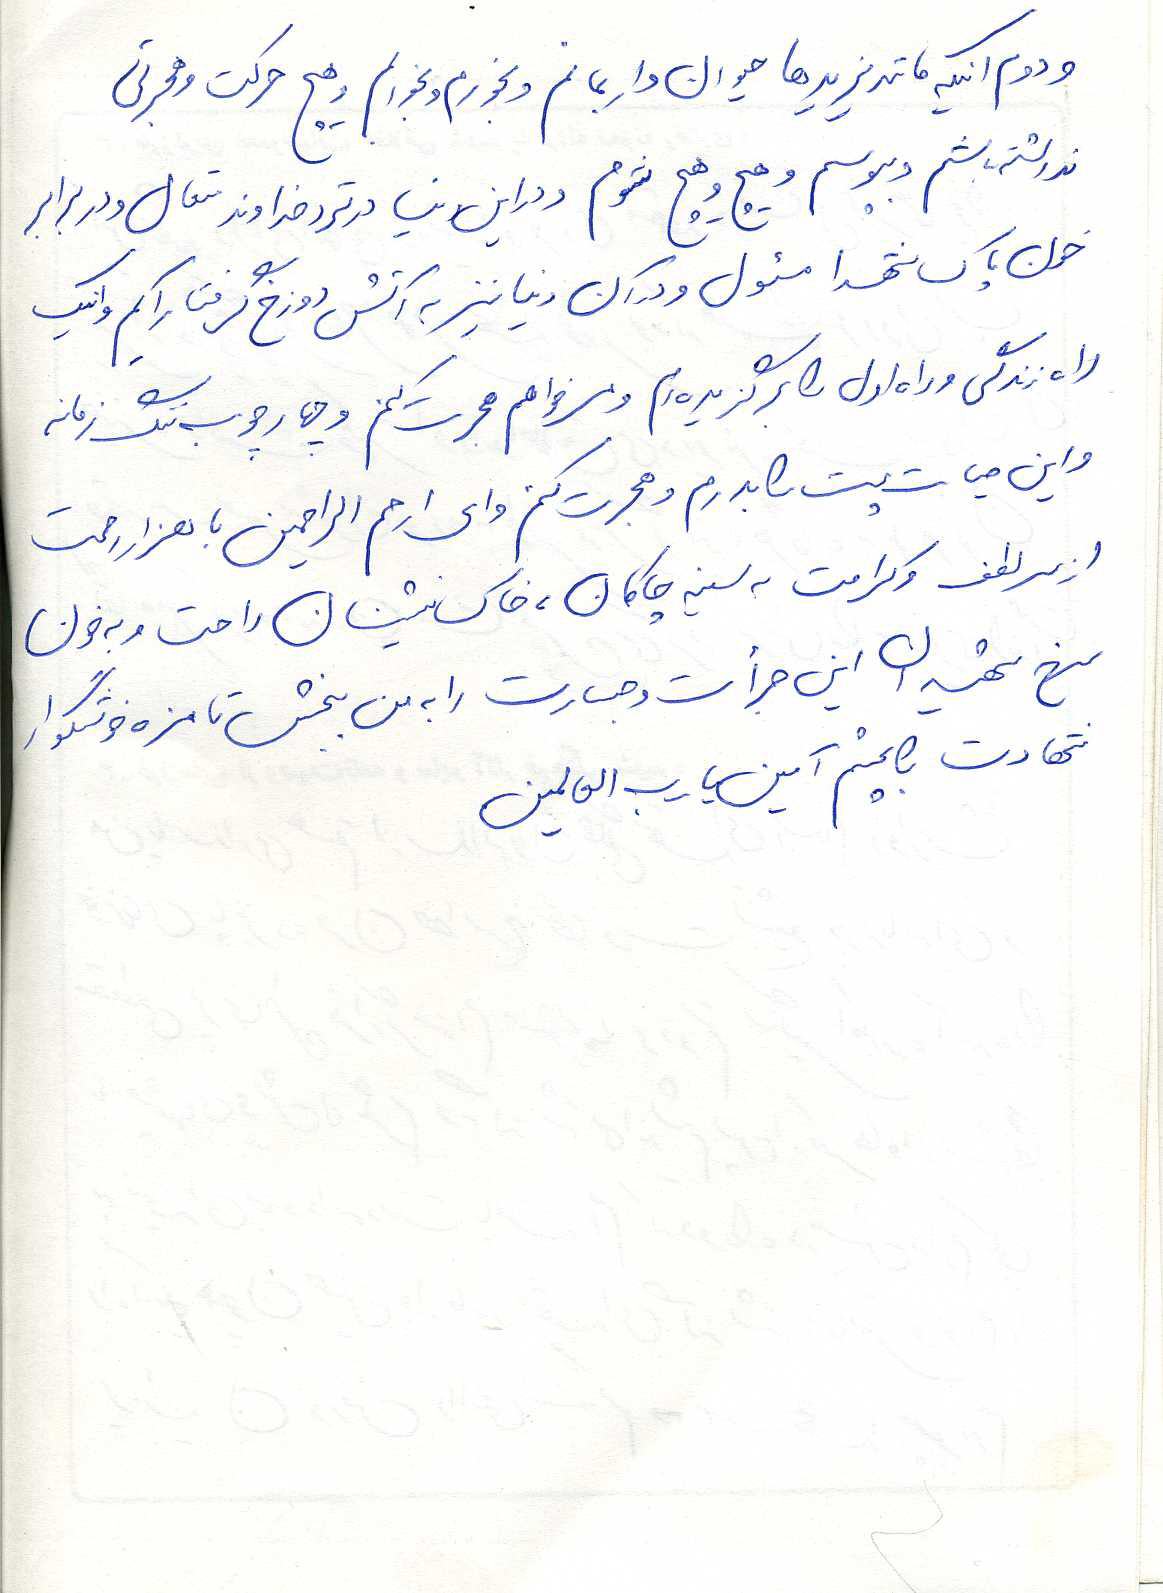 و دوم اینکه مانند یزیدیها حیوان وار بمانم و بخورم و بخوابم و هیچ حرکت و هجرتی
نداشته باشم و بپوسم و هیچ و هیچ شوم و در این دنیا در نزد خداوند متعال و در برابر
خون پاک شهدا مسئول و در آن دنیا نیز به آتش دوزخ گرفتار آیم و اینک
راه زندگی و راه اول را برگزیده‌ام و میخواهم هجرت کنم و چهارچوب تنگ زمانه
و این حیات پست را بدرم و هجرت کنم و ای ارحم الراحمین با هزار رحمت
از سر لطف و کرامت به سینه چاکان، خاک نشینان راحت و به خون
سرخ شهیدان این جرأت و جسارت را به من ببخش تا مزه خوشگوار
شهادت را بچشم آمین یا رب العالمین